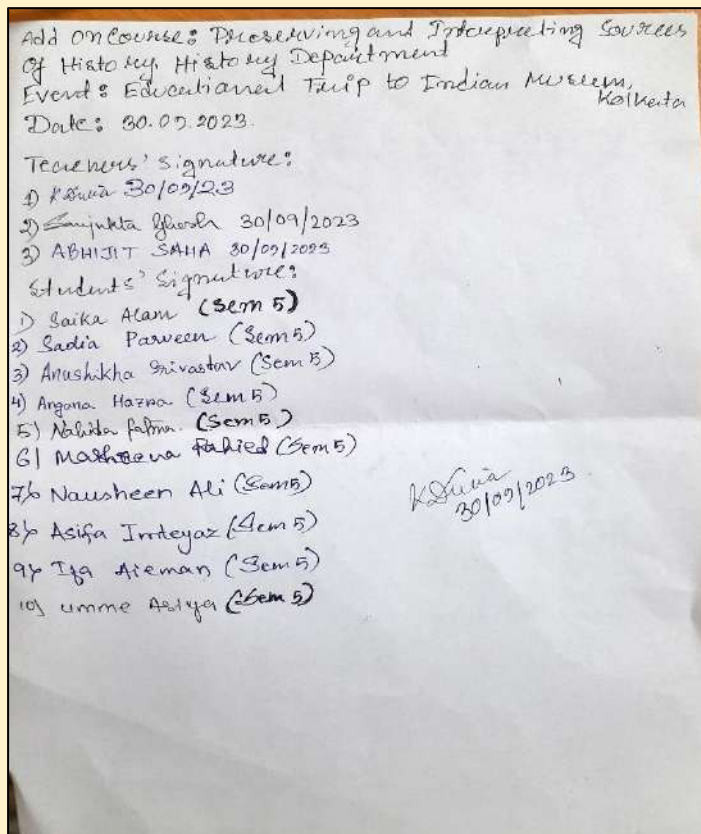 Add on Course: Preserving and Interpreting Sources
Of History, History Department
Event: Educational Trip to Indian Museum,
Kolkata
Date: 30.09.2023.
Teachers' Signature:
1) 30/09/23
2) Sanjukta Ghosh 30/09/2023
3) ABHIJIT SAHA 30/09/2023
Students' Signature:
1) Saika Alam (Sem 5)
2) Sadia Parveen (Sem 5)
3) Anushikha Srivastav (Sem 5)
4) Angana Hazra (Sem 5)
5) Nahida fatma. (Sem 5)
6) Fahied (Sem 5)
7) Nausheen Ali (Sem 5)
8) Asifa Imteyaz (Sem 5)
9) Ifa Aieman (Sem 5)
10) umme Asiya (Sem 5)
30/09/2023